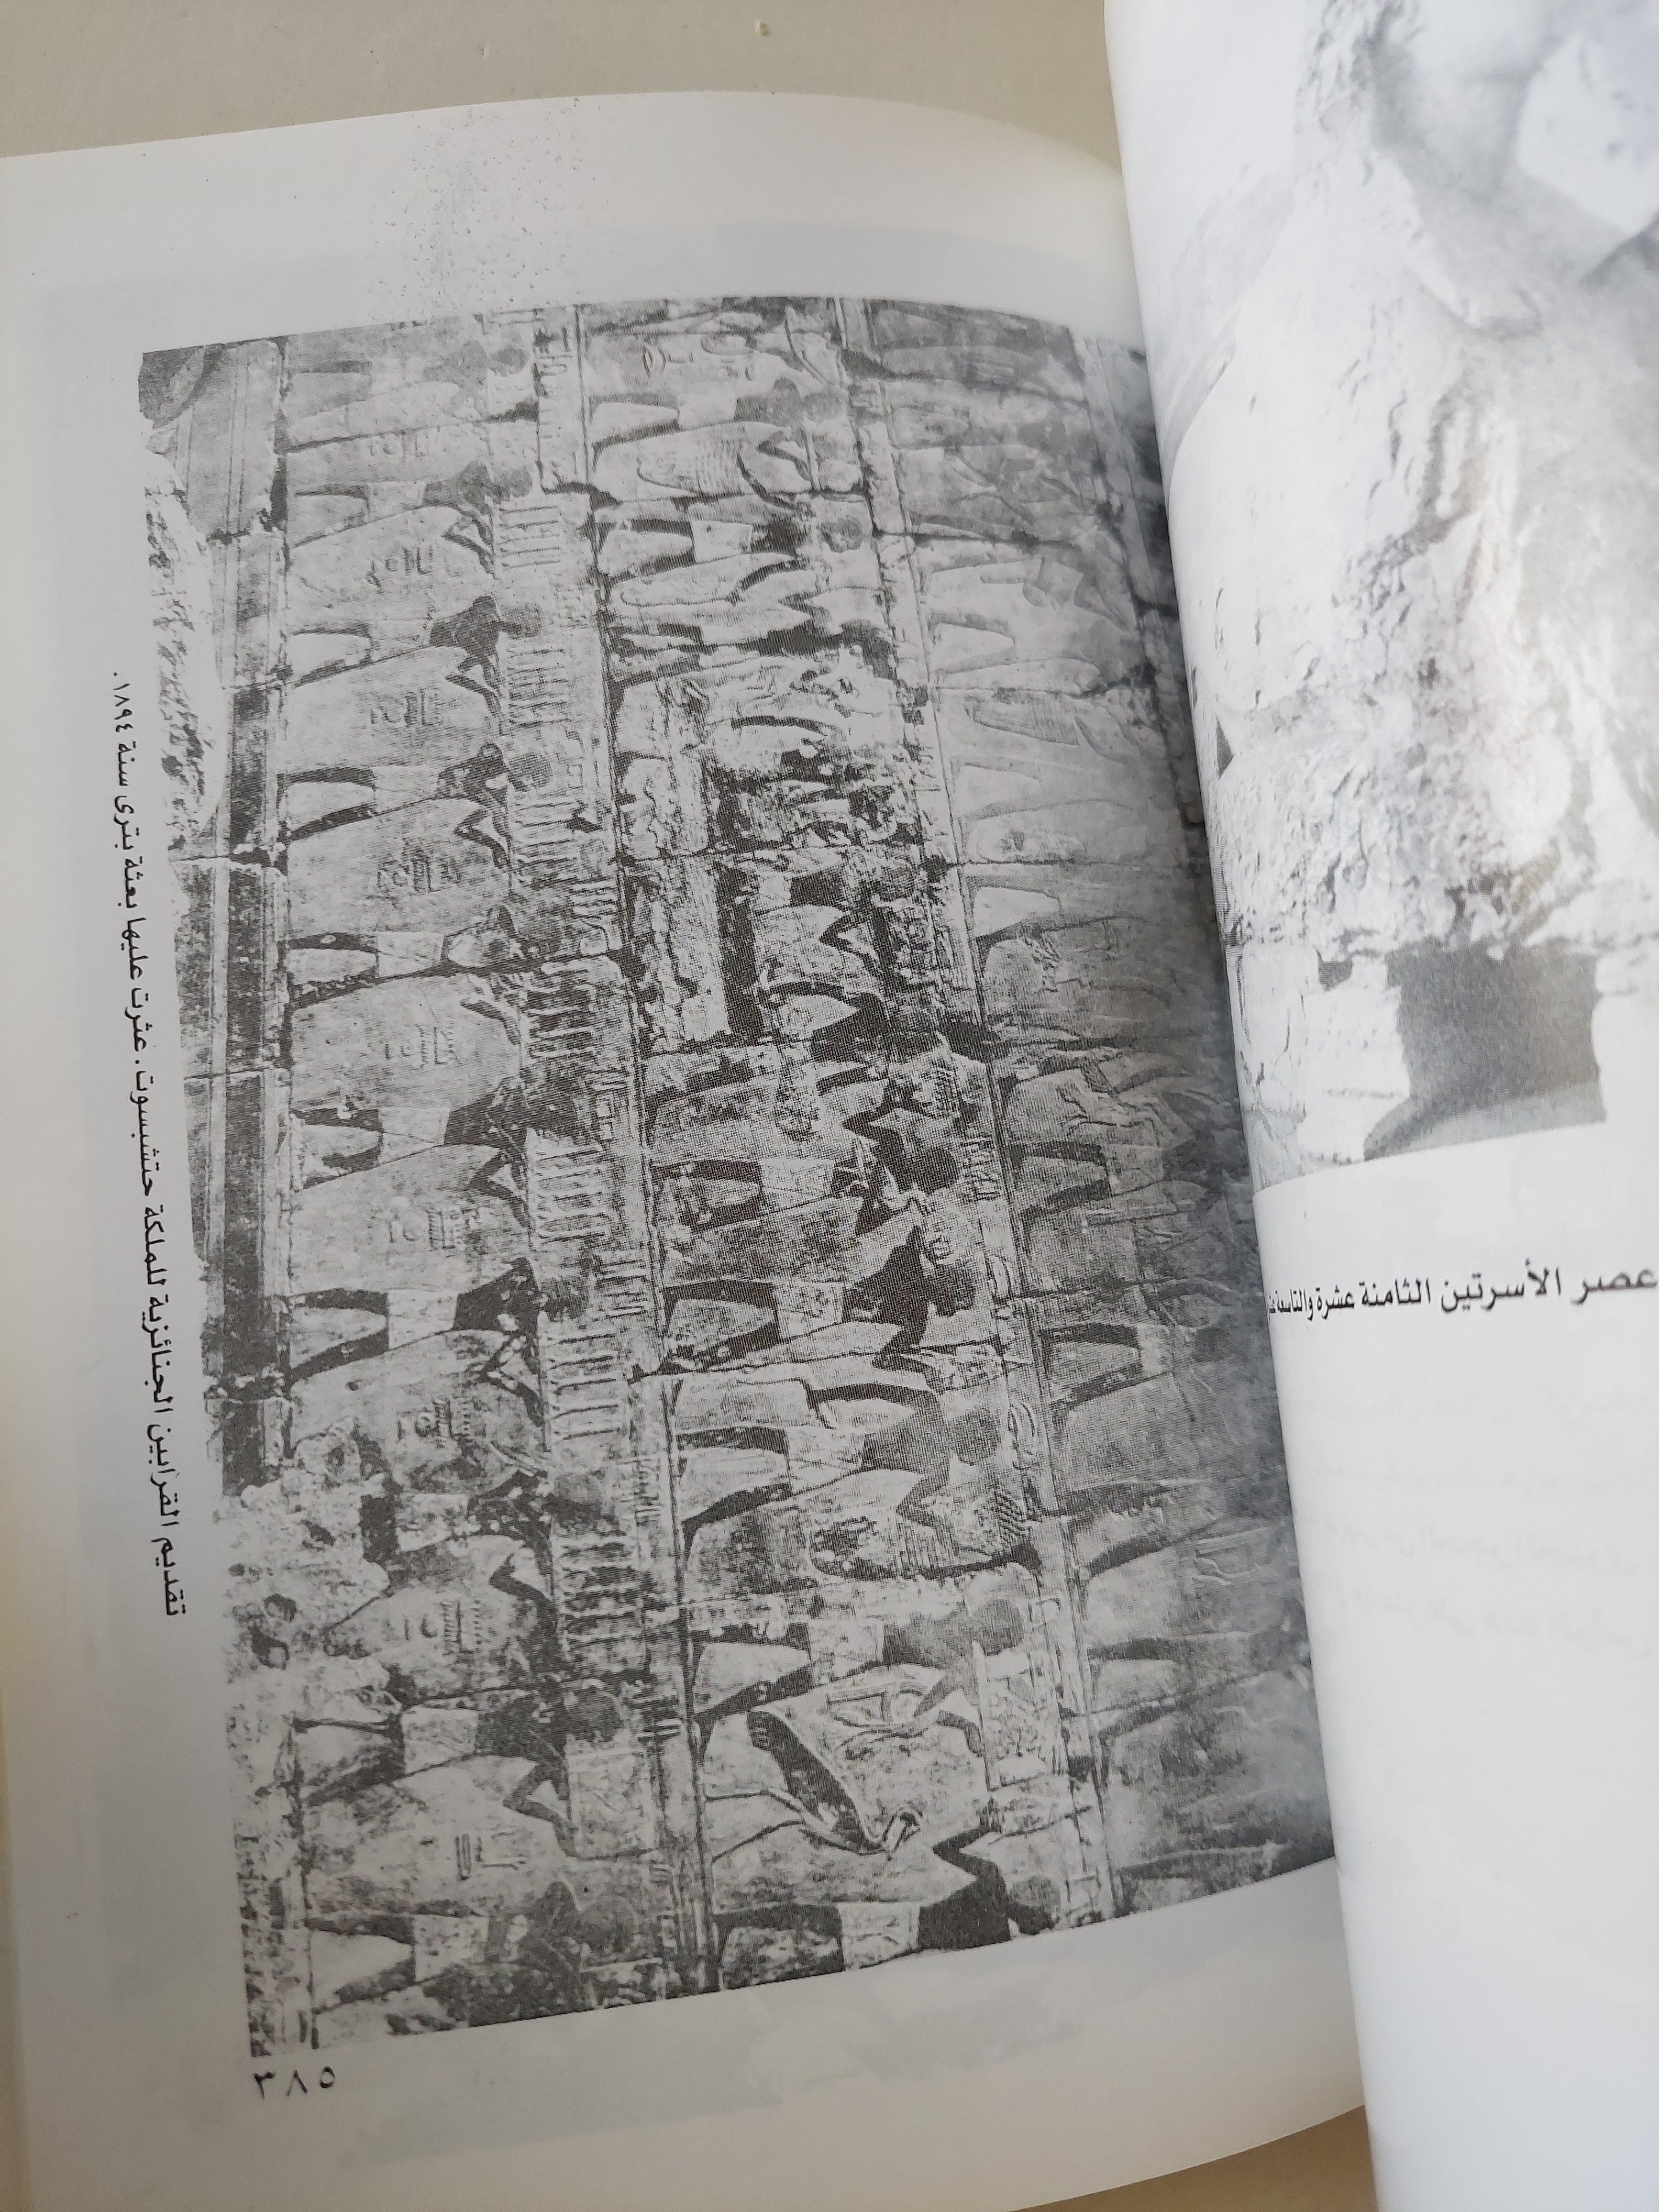 تقديم القرابين الجنائزية للملكة حتشبسوت. عثرت عليها بعثة بترى سنة ١٨٩٤.
٣٨٥
عصر الأسرتين الثامنة عشرة والتاسعة